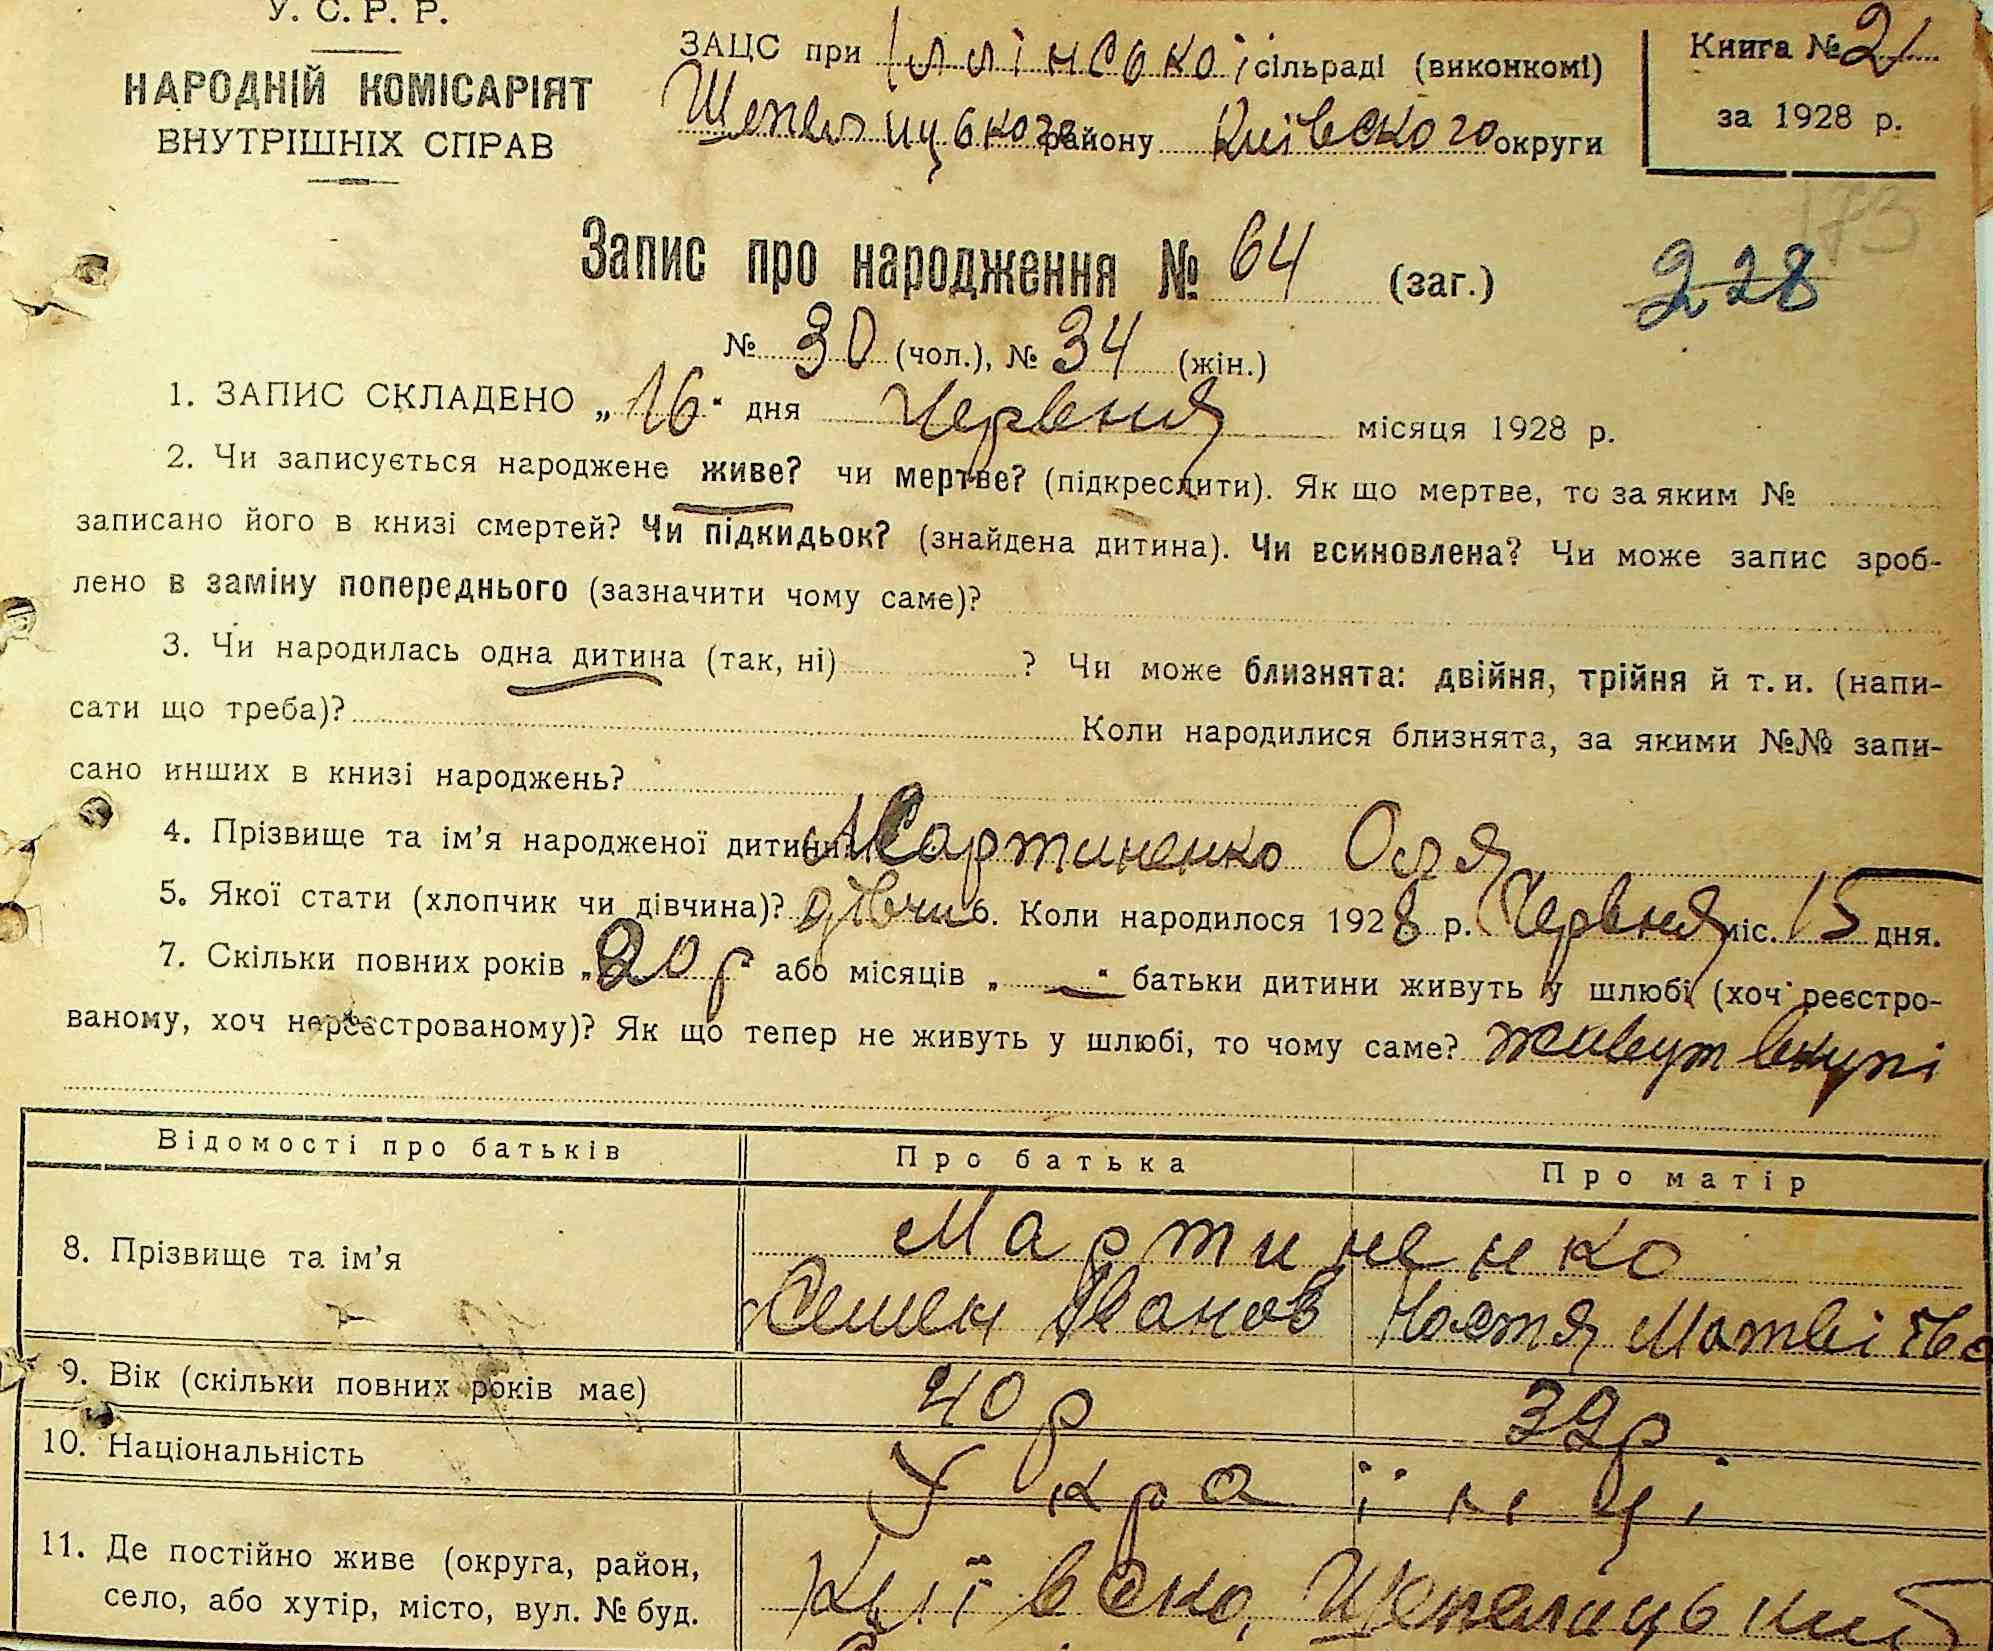 У. С. Р. Р.
НАРОДНІЙ КОМІСАРІЯТ
ВНУТРІШНІХ СПРАВ
ЗАЦС при Іллінської сільраді (виконкомі)
Шепелицького району Київського округи
Книга № 2
за 1928 р.
173
Запис про народження № 64 (заг.)
228
№ 30 (чол.), № 34 (жін.)
1. ЗАПИС СКЛАДЕНО „16“ дня Червня місяця 1928 р.
2. Чи записується народжене живе? чи мертве? (підкреслити). Як що мертве, то за яким №
записано його в книзі смертей? Чи підкидьок? (знайдена дитина). Чи всиновлена? Чи може запис зроб-
лено в заміну попереднього (зазначити чому саме)?
3. Чи народилась одна дитина (так, ні) ? Чи може близнята: двійня, трійня й т. и. (напи-
сати що треба)? Коли народилися близнята, за якими №№ запи-
сано инших в книзі народжень?
4. Прізвище та ім’я народженої дитини? Мартиненко Оля
5. Якої стати (хлопчик чи дівчина)? дівчи 6. Коли народилося 1928 р. Червня міс. 15 дня.
7. Скільки повних років „20 р“ або місяців „—“ батьки дитини живуть у шлюбі (хоч реєстро-
ваному, хоч нереєстрованому)? Як що тепер не живуть у шлюбі, то чому саме? живут вкупі
Відомості про батьків Про батька Про матір
8. Прізвище та ім’я Мартиненко
Семен Іванов Настя Матвієва
9. Вік (скільки повних років має) 40 р 39 р.
10. Національність Українці
11. Де постійно живе (округа, район,
село, або хутір, місто, вул. № буд. Київско, Шепелицький